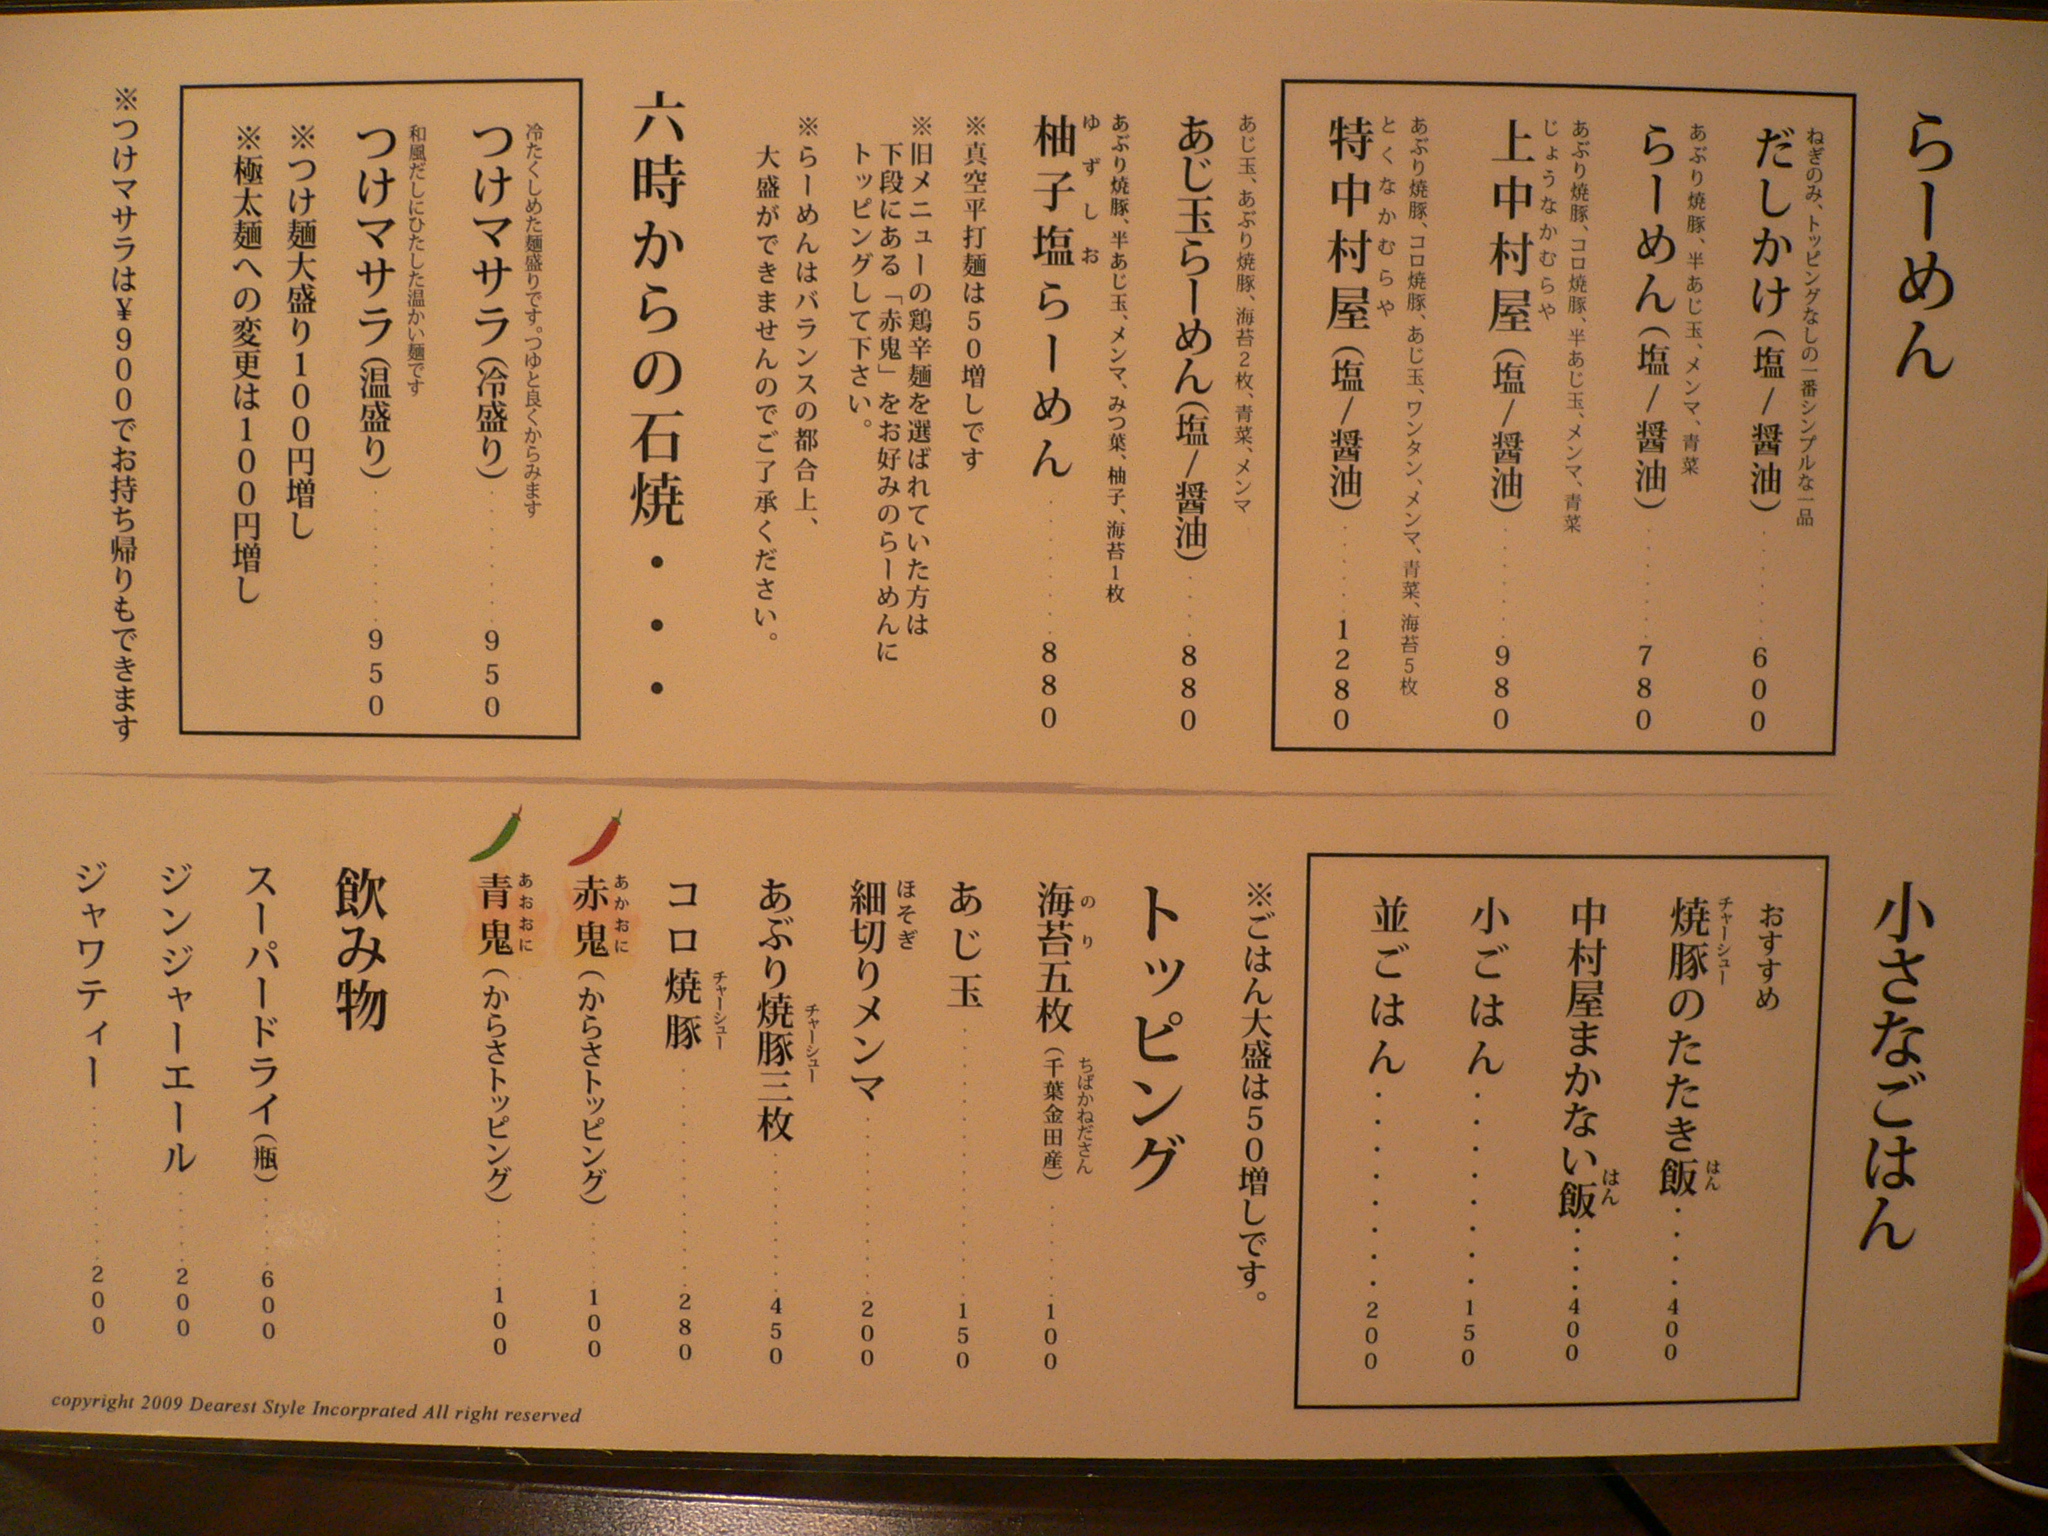 らーめん
ねぎのみ、トッピングなしの一番シンプルな一品
だしかけ(塩/醤油)・・・・・・600
あぶり焼豚、半あじ玉、メンマ、青菜
らーめん(塩/醤油)・・・・・・780
あぶり焼豚、コロ焼豚、半あじ玉、メンマ、青菜
じょうなかむらや
上中村屋(塩/醤油)・・・・・・980
あぶり焼豚、コロ焼豚、あじ玉、ワンタン、メンマ、青菜、海苔5枚
とくなかむらや
特中村屋(塩/醤油)・・・・・・1280
あじ玉、あぶり焼豚、海苔2枚、青菜、メンマ
あじ玉らーめん(塩/醤油)・・・・880
あぶり焼豚、半あじ玉、メンマ、みつ葉、柚子、海苔1枚
ゆずしお
柚子塩らーめん・・・・・・・・880
※真空平打麺は50増しです
※旧メニューの鶏辛麺を選ばれていた方は
下段にある「赤鬼」をお好みのらーめんに
トッピングして下さい。
※らーめんはバランスの都合上、
大盛ができませんのでご了承ください。
六時からの石焼・・・
冷たくしめた麺盛りです。つゆと良くからみます
つけマサラ(冷盛り)・・・・・・950
和風だしにひたした温かい麺です
つけマサラ(温盛り)・・・・・・950
※つけ麺大盛り100円増し
※極太麺への変更は100円増し
※つけマサラは¥900でお持ち帰りもできます
小さなごはん
おすすめ
チャーシュー はん
焼豚のたたき飯・・・・400
はん
中村屋まかない飯・・・・400
小ごはん・・・・・・・・150
並ごはん・・・・・・・・200
※ごはん大盛は50増しです。
トッピング
のり ちばかねださん
海苔五枚(千葉金田産)・・・・・・100
あじ玉・・・・・・・・・・・・150
ほそぎ
細切りメンマ・・・・・・・・・・200
チャーシュー
あぶり焼豚三枚・・・・・・・・450
チャーシュー
コロ焼豚・・・・・・・・・・・・280
あかおに
赤鬼(からさトッピング)・・・・・100
あおおに
青鬼(からさトッピング)・・・・・100
飲み物
スーパードライ(瓶)・・・・・・600
ジンジャーエール・・・・・・200
ジャワティー・・・・・・・・・・200
copyright 2009 Dearest Style Incorprated All right reserved